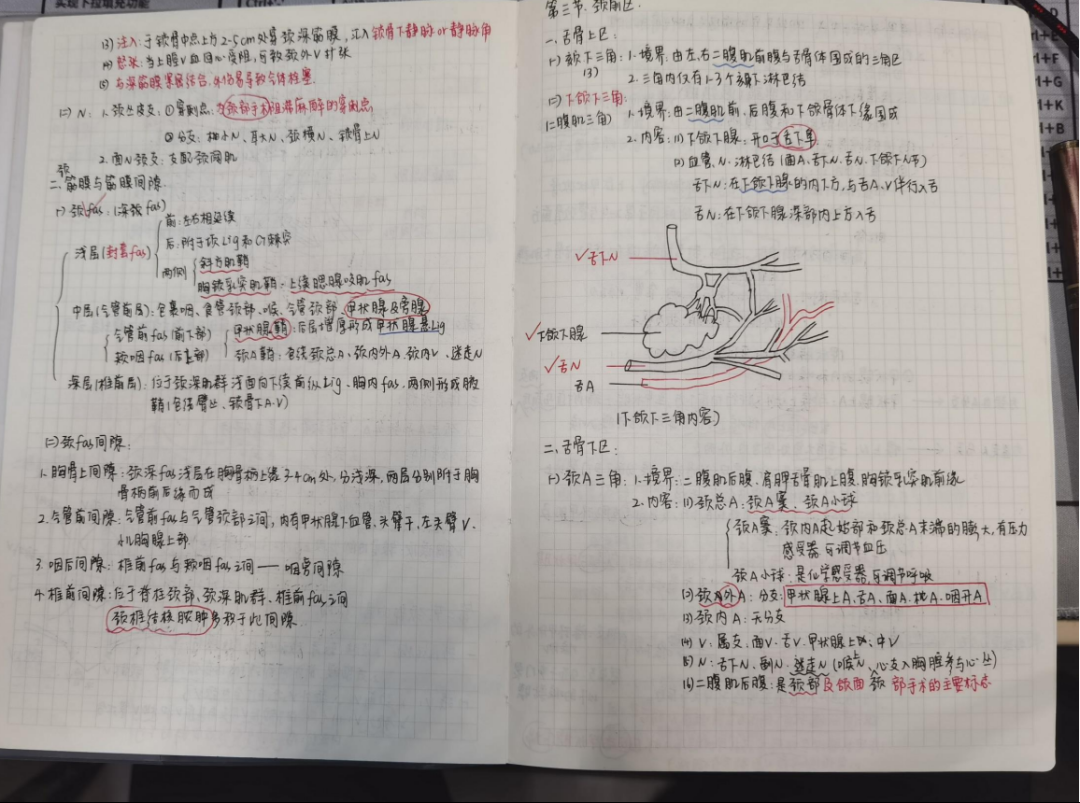 实现下拉填充功能
Ctrl+
(3) 注入: 于锁骨中点上方2-5cm处穿颈深筋膜, 汇入锁骨下静脉or静脉角
(4) 怒张: 当上腔V血回心受阻, 可致颈外V扩张
(5) 与深筋膜紧密结合, 外伤易导致气体栓塞
(二) N: 1. 颈丛皮支: ①穿刺点: 为颈部手术阻滞麻醉的穿刺点
②分支: 枕小N、耳大N、颈横N、锁骨上N
2. 面N颈支: 支配颈阔肌
二、颈筋膜与筋膜间隙
(一) 颈fas: (深颈fas)
浅层(封套fas)
前: 左右相延续
后: 附于项Lig和C7棘突
两侧
斜方肌鞘
胸锁乳突肌鞘: 上续腮腺咬肌fas
中层(气管前层): 包裹咽、食管颈部、喉、气管颈部、甲状腺及旁腺
气管前fas(前下部)
颊咽fas(后上部)
甲状腺鞘: 后层增厚形成甲状腺悬Lig
颈A鞘: 包绕颈总A、颈内外A、颈内V、迷走N
深层(椎前层): 位于颈深肌群浅面向下续前纵Lig、胸内fas, 两侧形成腋
鞘(包绕臂丛、锁骨下A.V)
(二) 颈fas间隙:
1. 胸骨上间隙: 颈深fas浅层在胸骨柄上缘3-4cm处, 分浅深, 两层分别附于胸
骨柄前后缘而成
2. 气管前间隙: 气管前fas与气管颈部之间, 内有甲状腺下血管, 头臂干, 左头臂V,
小儿胸腺上部
3. 咽后间隙: 椎前fas与颊咽fas之间 —— 咽旁间隙
4. 椎前间隙: 位于脊柱颈部、颈深肌群、椎前fas之间
颈椎结核脓肿多积于此间隙
第三节. 颈前区.
一、舌骨上区:
(一) 颏下三角: 1. 境界: 由左、右二腹肌前腹与舌骨体围成的三角区
2. 三角内仅有1-3个颏下淋巴结
(二) 下颌下三角:
(二腹肌三角)
1. 境界: 由二腹肌前、后腹和下颌骨体下缘围成
2. 内容: (1) 下颌下腺, 开口于舌下阜
(2) 血管、N、淋巴结 (面A、舌下N、舌N、下颌下N节)
舌下N: 在下颌下腺的内下方, 与舌A、V伴行入舌
舌N: 在下颌下腺深部内上方入舌
√舌下N
√下颌下腺
√舌N
舌A
(下颌下三角内容)
二、舌骨下区:
(一) 颈A三角: 1. 境界: 二腹肌后腹、肩胛舌骨肌上腹、胸锁乳突肌前缘
2. 内容: (1) 颈总A: 颈A窦、颈A小球
颈A窦: 颈内A起始部和颈总A末端的膨大, 有压力
感受器 可调节血压
颈A小球: 是化学感受器, 可调节呼吸
(2) 颈外A: 分支: 甲状腺上A、舌A、面A、枕A、咽升A
(3) 颈内A: 无分支
(4) V: 属支: 面V、舌V、甲状腺上、中V
(5) N: 舌下N、副N、迷走N (喉上N、心支入胸腔参与心丛)
(6) 二腹肌后腹: 是颈部及颌面颈部手术的主要标志